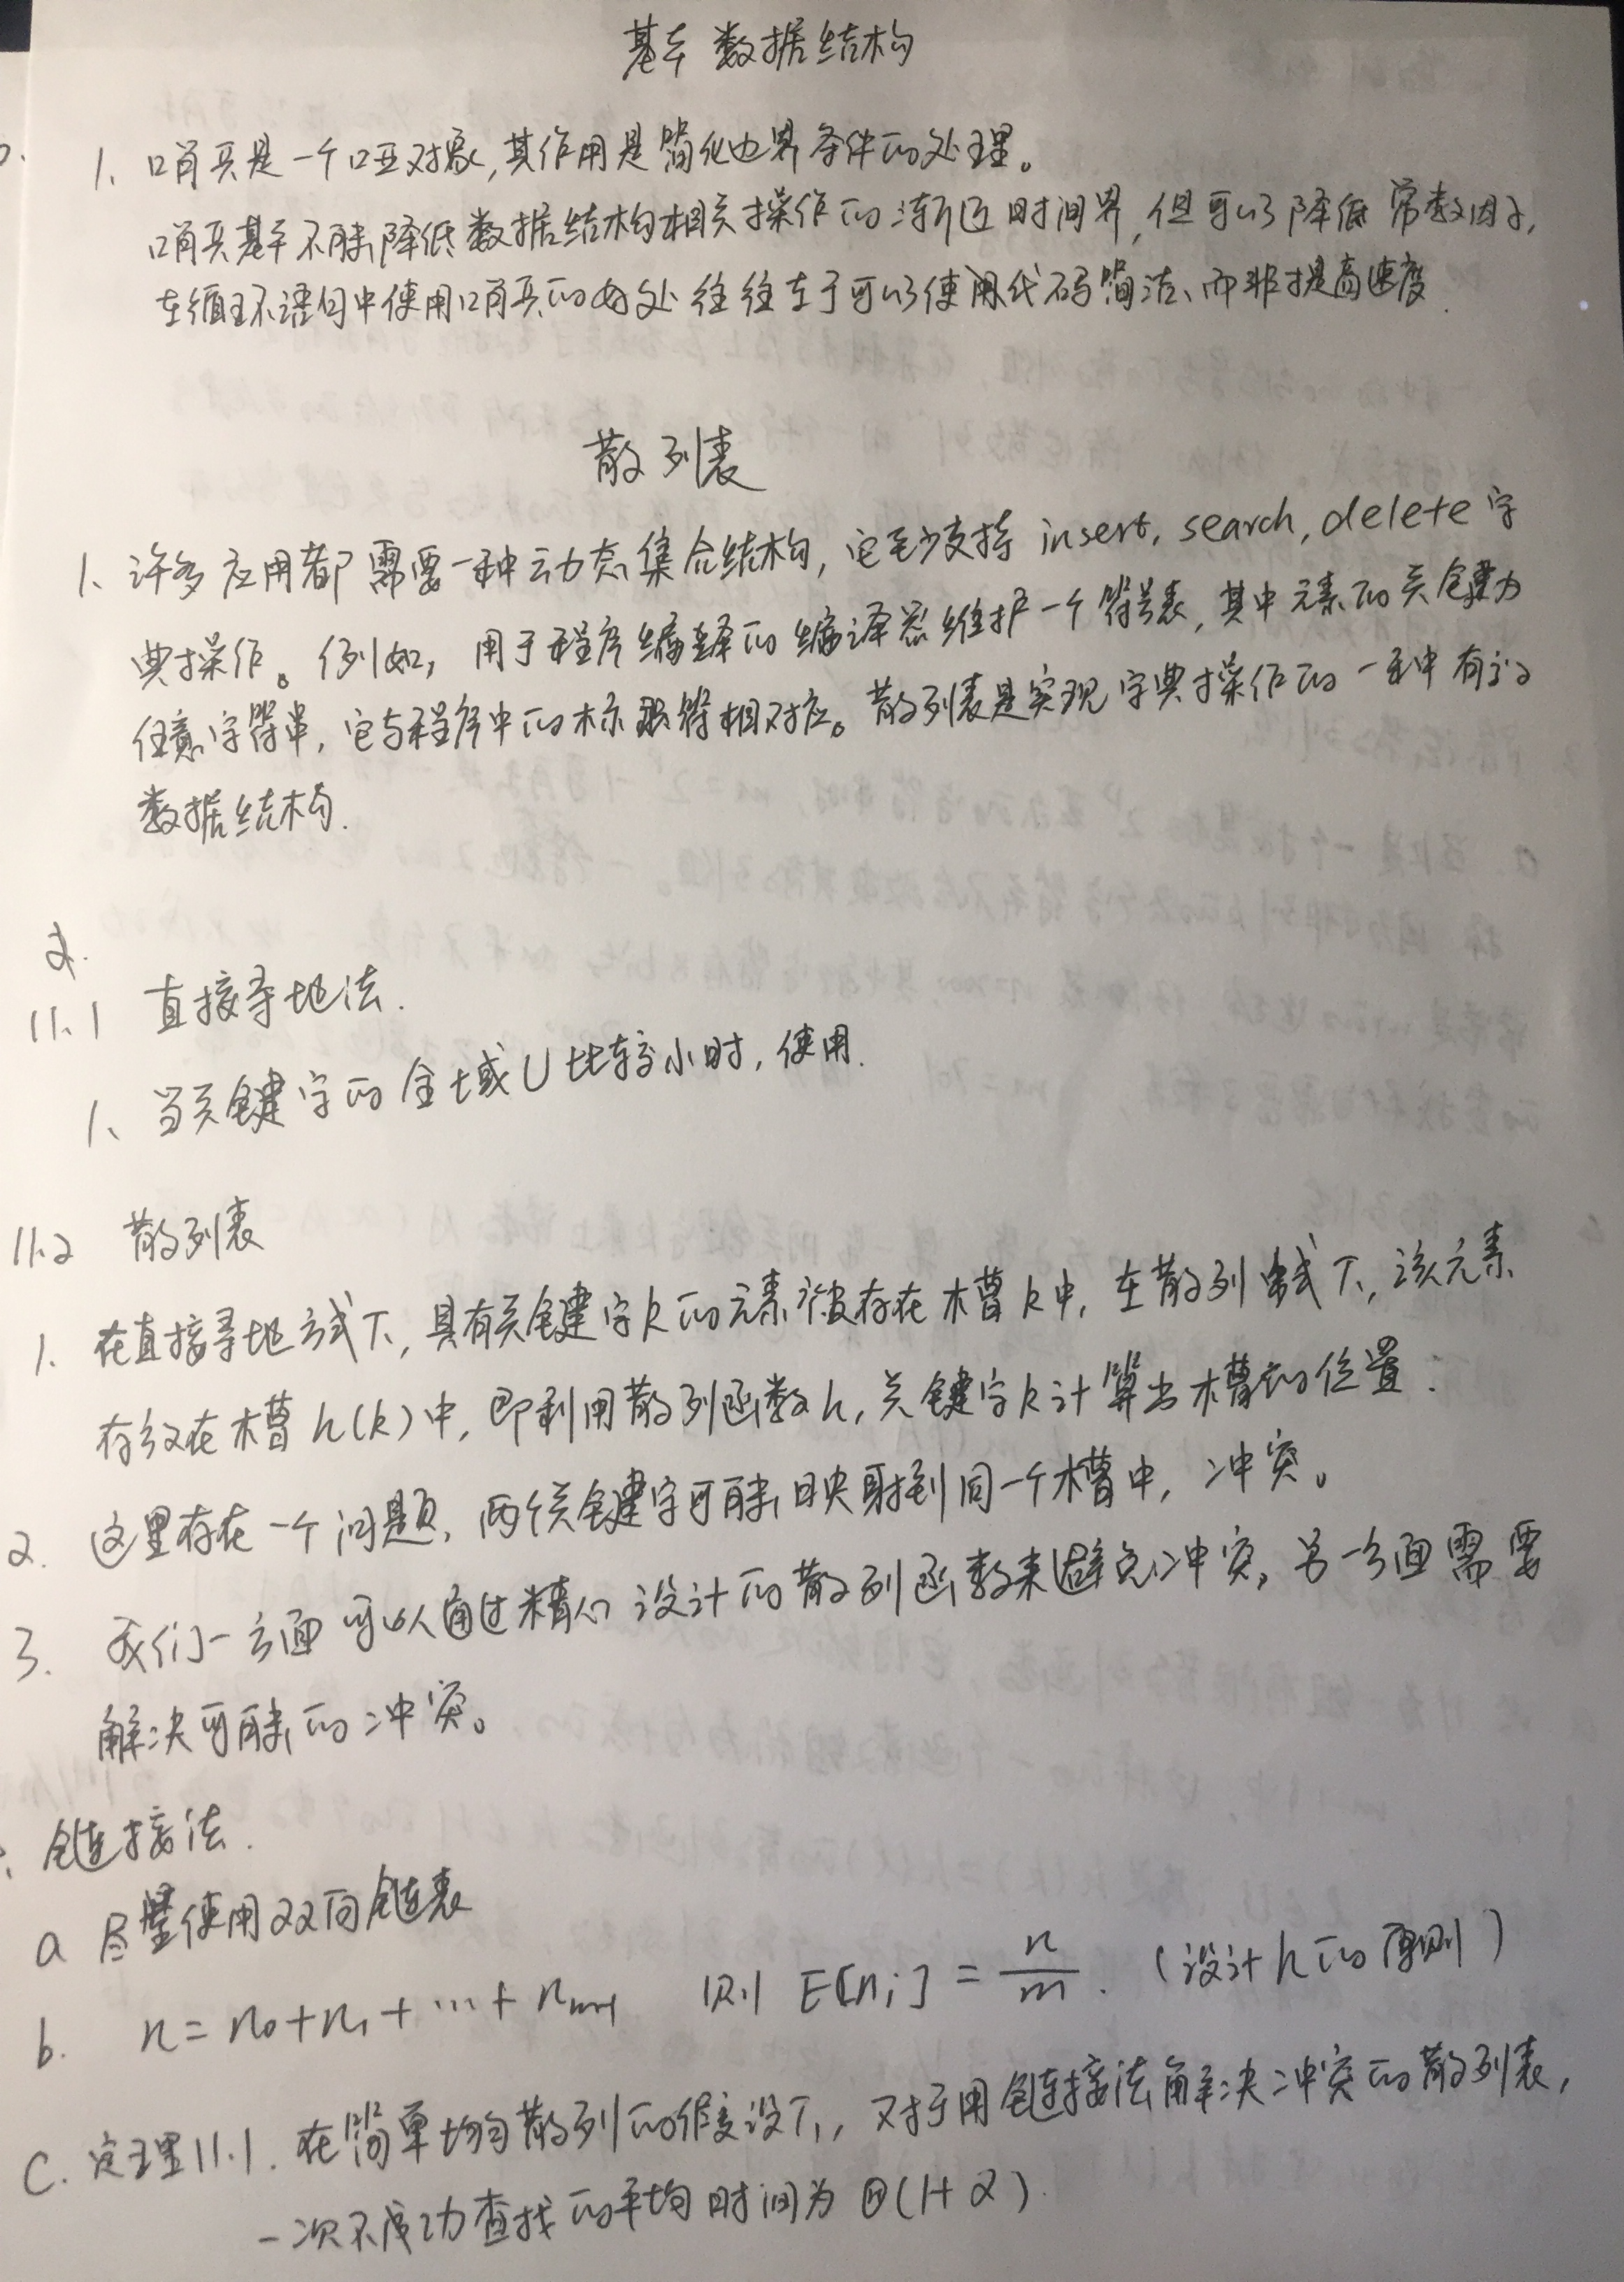 基本数据结构
1、哨兵是一个哑对象,其作用是简化边界条件的处理。
哨兵基本不能降低数据结构相关操作的渐近时间界,但可以降低常数因子,
在循环语句中使用哨兵的好处往往在于可以使用代码简洁、而非提高速度.
散列表
1、许多应用都需要一种动态集合结构,它至少支持 insert, search, delete 字
典操作。例如,用于程序编译的编译器维护一个符号表,其中元素的关键为
任意字符串,它与程序中的标识符相对应。散列表是实现字典操作的一种有效
数据结构.
2.
11.1 直接寻地法.
1、当关键字的全域U比较小时,使用.
11.2 散列表
1. 在直接寻地方式下,具有关键字k的元素被存在槽k中,在散列方式下,该元素
存放在槽h(k)中,即利用散列函数h,关键字k计算出槽的位置.
2. 这里存在一个问题,两个关键字可能映射到同一个槽中,冲突。
3. 我们一方面可以通过精心设计的散列函数来避免冲突,另一方面需要
解决可能的冲突。
链接法.
a 尽量使用双向链表
b. n = n₀+n₁+···+nₘ₋₁ 则 E[nᵢ] = n/m. (设计h的原则)
C. 定理11.1. 在简单均匀散列的假设下,对于用链接法解决冲突的散列表,
一次不成功查找的平均时间为Θ(1+α).